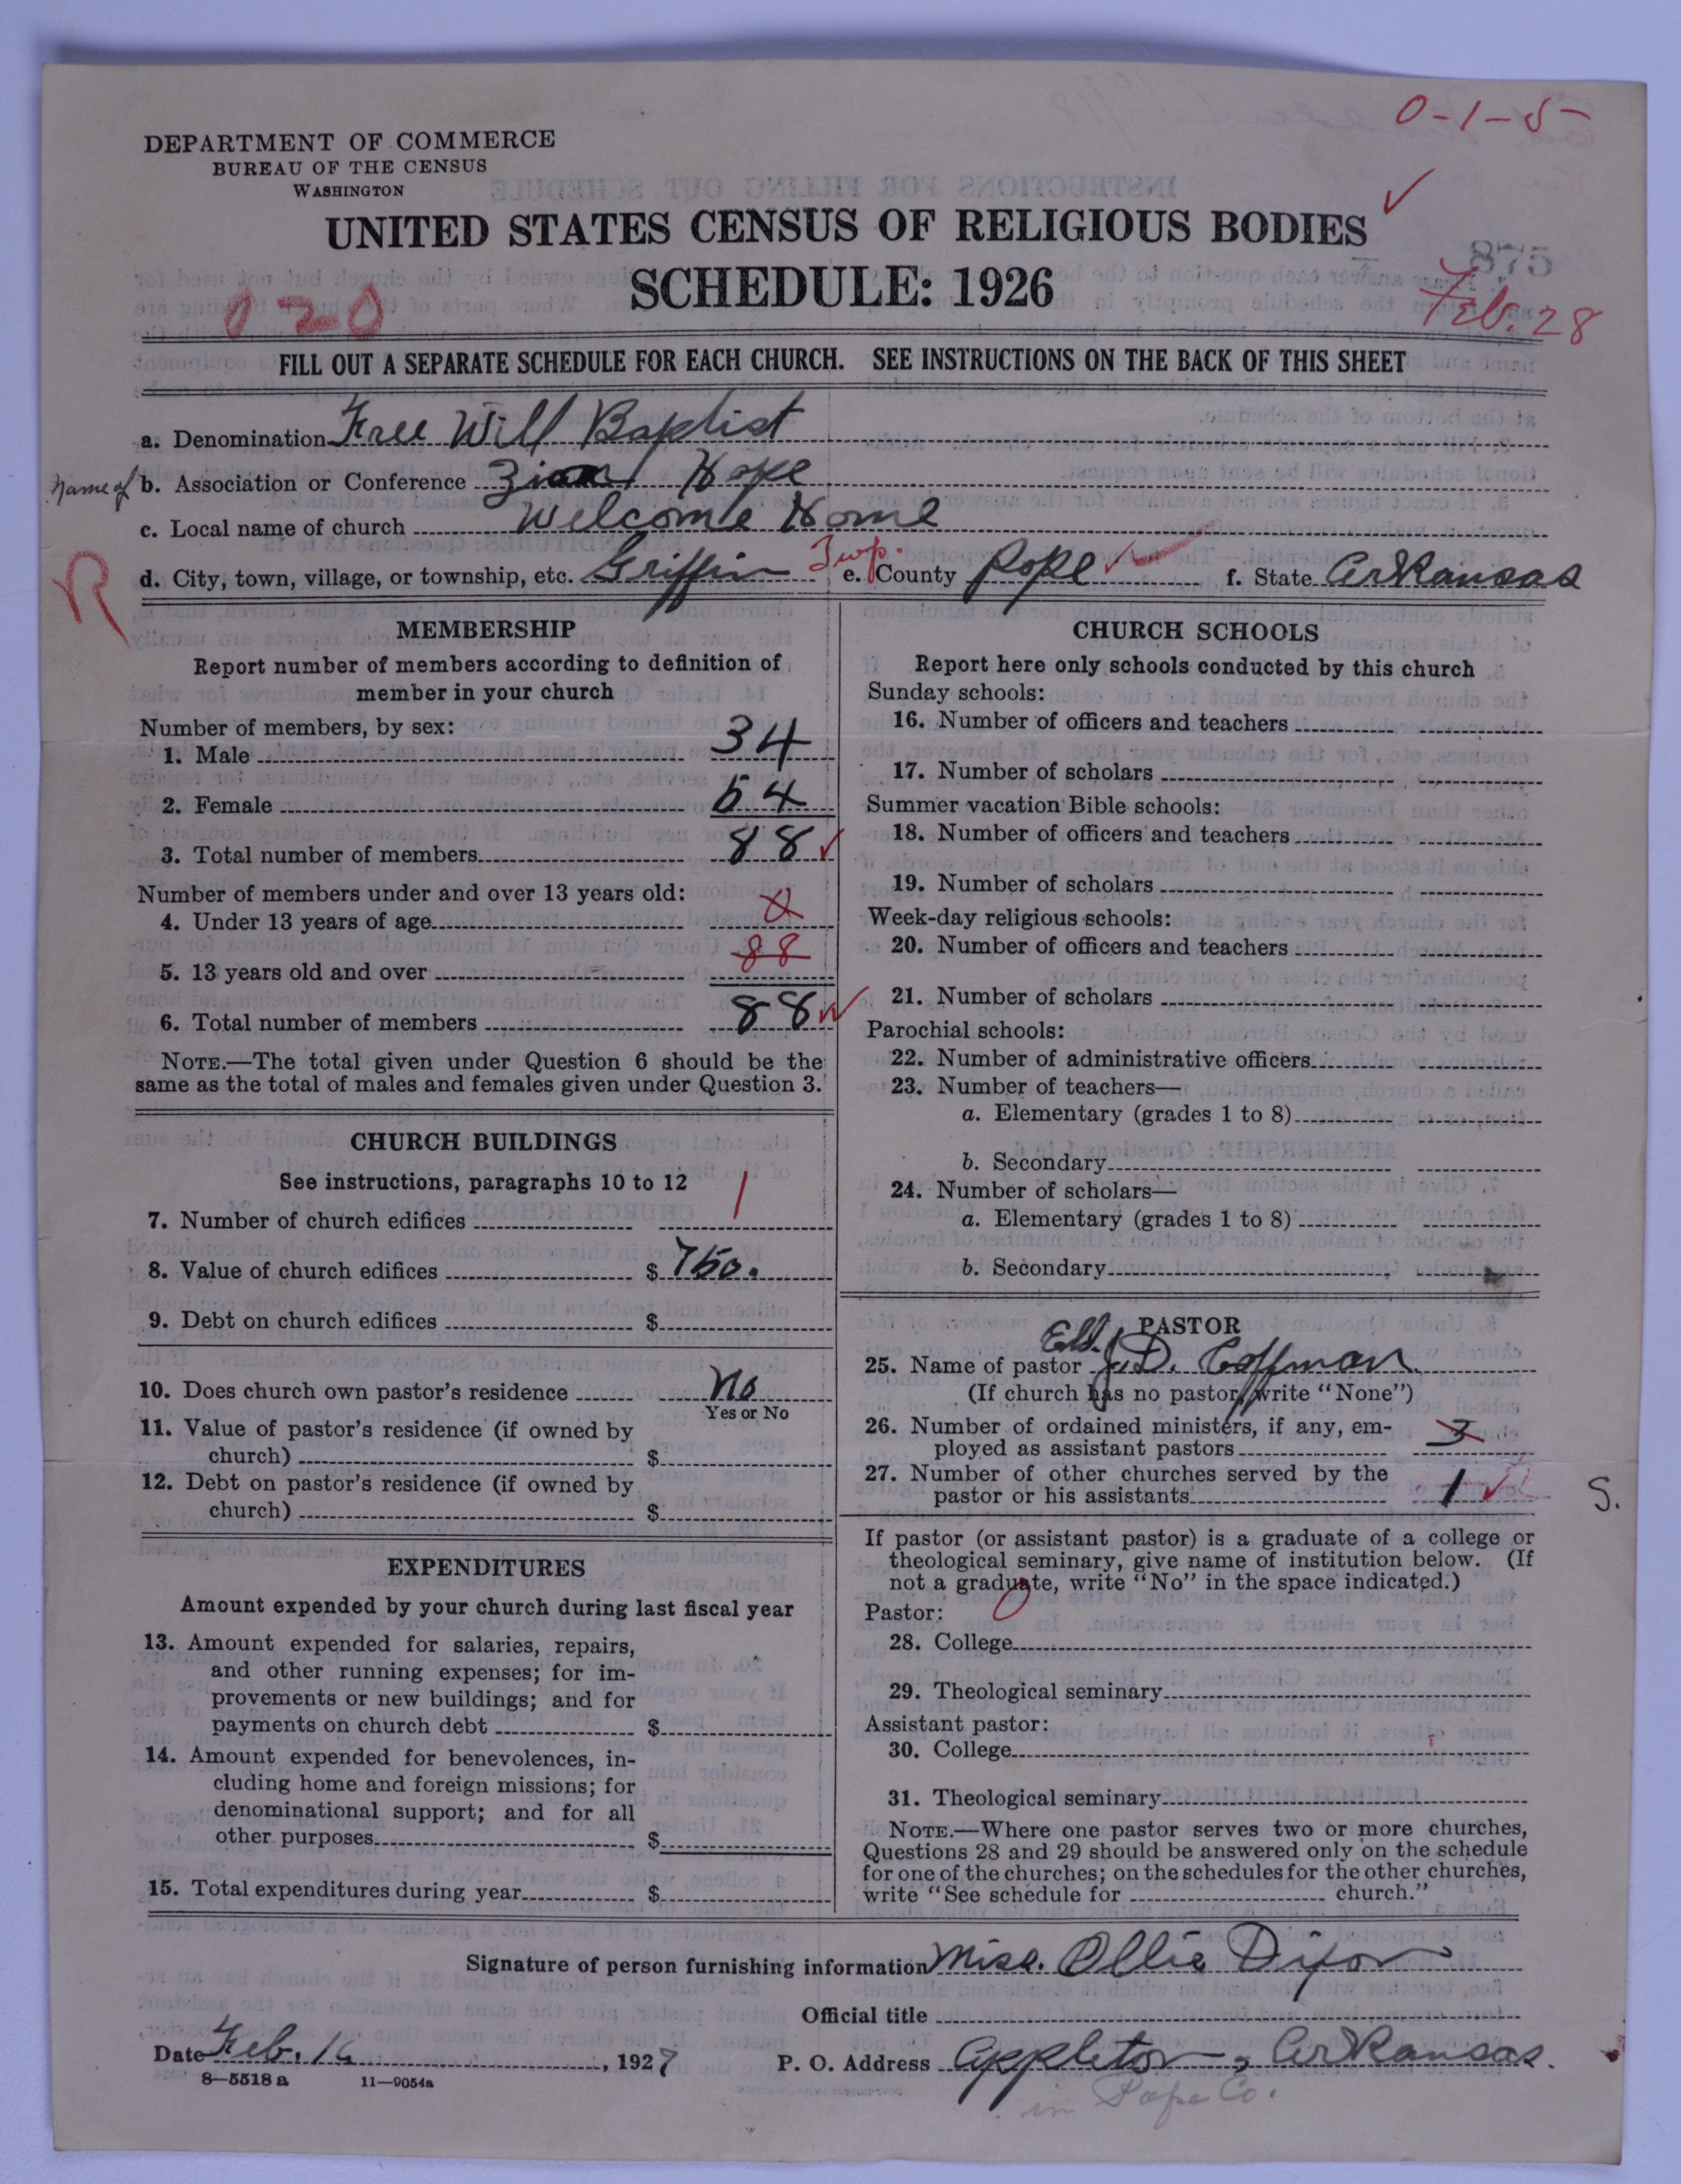 0-1-5
DEPARTMENT OF COMMERCE
BUREAU OF THE CENSUS
WASHINGTON
UNITED STATES CENSUS OF RELIGIOUS BODIES
875
SCHEDULE: 1926
020
Feb. 28
FILL OUT A SEPARATE SCHEDULE FOR EACH CHURCH. SEE INSTRUCTIONS ON THE BACK OF THIS SHEET
a. Denomination Free Will Baptist
Name of b. Association or Conference Zion Hope
c. Local name of church Welcome Home
R d. City, town, village, or township, etc. Griffin Twp. e. County Pope f. State Arkansas
MEMBERSHIP
Report number of members according to definition of
member in your church
Number of members, by sex:
1. Male 34
2. Female 54
3. Total number of members 88
Number of members under and over 13 years old:
4. Under 13 years of age
5. 13 years old and over 88
6. Total number of members 88
NOTE.—The total given under Question 6 should be the
same as the total of males and females given under Question 3.
CHURCH BUILDINGS
See instructions, paragraphs 10 to 12
7. Number of church edifices 1
8. Value of church edifices $ 750.
9. Debt on church edifices $
10. Does church own pastor's residence No
Yes or No
11. Value of pastor's residence (if owned by
church) $
12. Debt on pastor's residence (if owned by
church) $
EXPENDITURES
Amount expended by your church during last fiscal year
13. Amount expended for salaries, repairs,
and other running expenses; for im-
provements or new buildings; and for
payments on church debt $
14. Amount expended for benevolences, in-
cluding home and foreign missions; for
denominational support; and for all
other purposes $
15. Total expenditures during year $
CHURCH SCHOOLS
Report here only schools conducted by this church
Sunday schools:
16. Number of officers and teachers
17. Number of scholars
Summer vacation Bible schools:
18. Number of officers and teachers
19. Number of scholars
Week-day religious schools:
20. Number of officers and teachers
21. Number of scholars
Parochial schools:
22. Number of administrative officers
23. Number of teachers—
a. Elementary (grades 1 to 8)
b. Secondary
24. Number of scholars—
a. Elementary (grades 1 to 8)
b. Secondary
PASTOR
25. Name of pastor Eld. J.D. Coffman
(If church has no pastor, write "None")
26. Number of ordained ministers, if any, em-
ployed as assistant pastors 3
27. Number of other churches served by the
pastor or his assistants 1 S.
If pastor (or assistant pastor) is a graduate of a college or
theological seminary, give name of institution below. (If
not a graduate, write "No" in the space indicated.)
Pastor:
28. College
29. Theological seminary
Assistant pastor:
30. College
31. Theological seminary
NOTE.—Where one pastor serves two or more churches,
Questions 28 and 29 should be answered only on the schedule
for one of the churches; on the schedules for the other churches,
write "See schedule for church."
Signature of person furnishing information Miss. Ollie Dixon
Official title
Date Feb. 16, 1927 P. O. Address Appleton, Arkansas.
8—5518 a 11—9054a
in Pope Co.